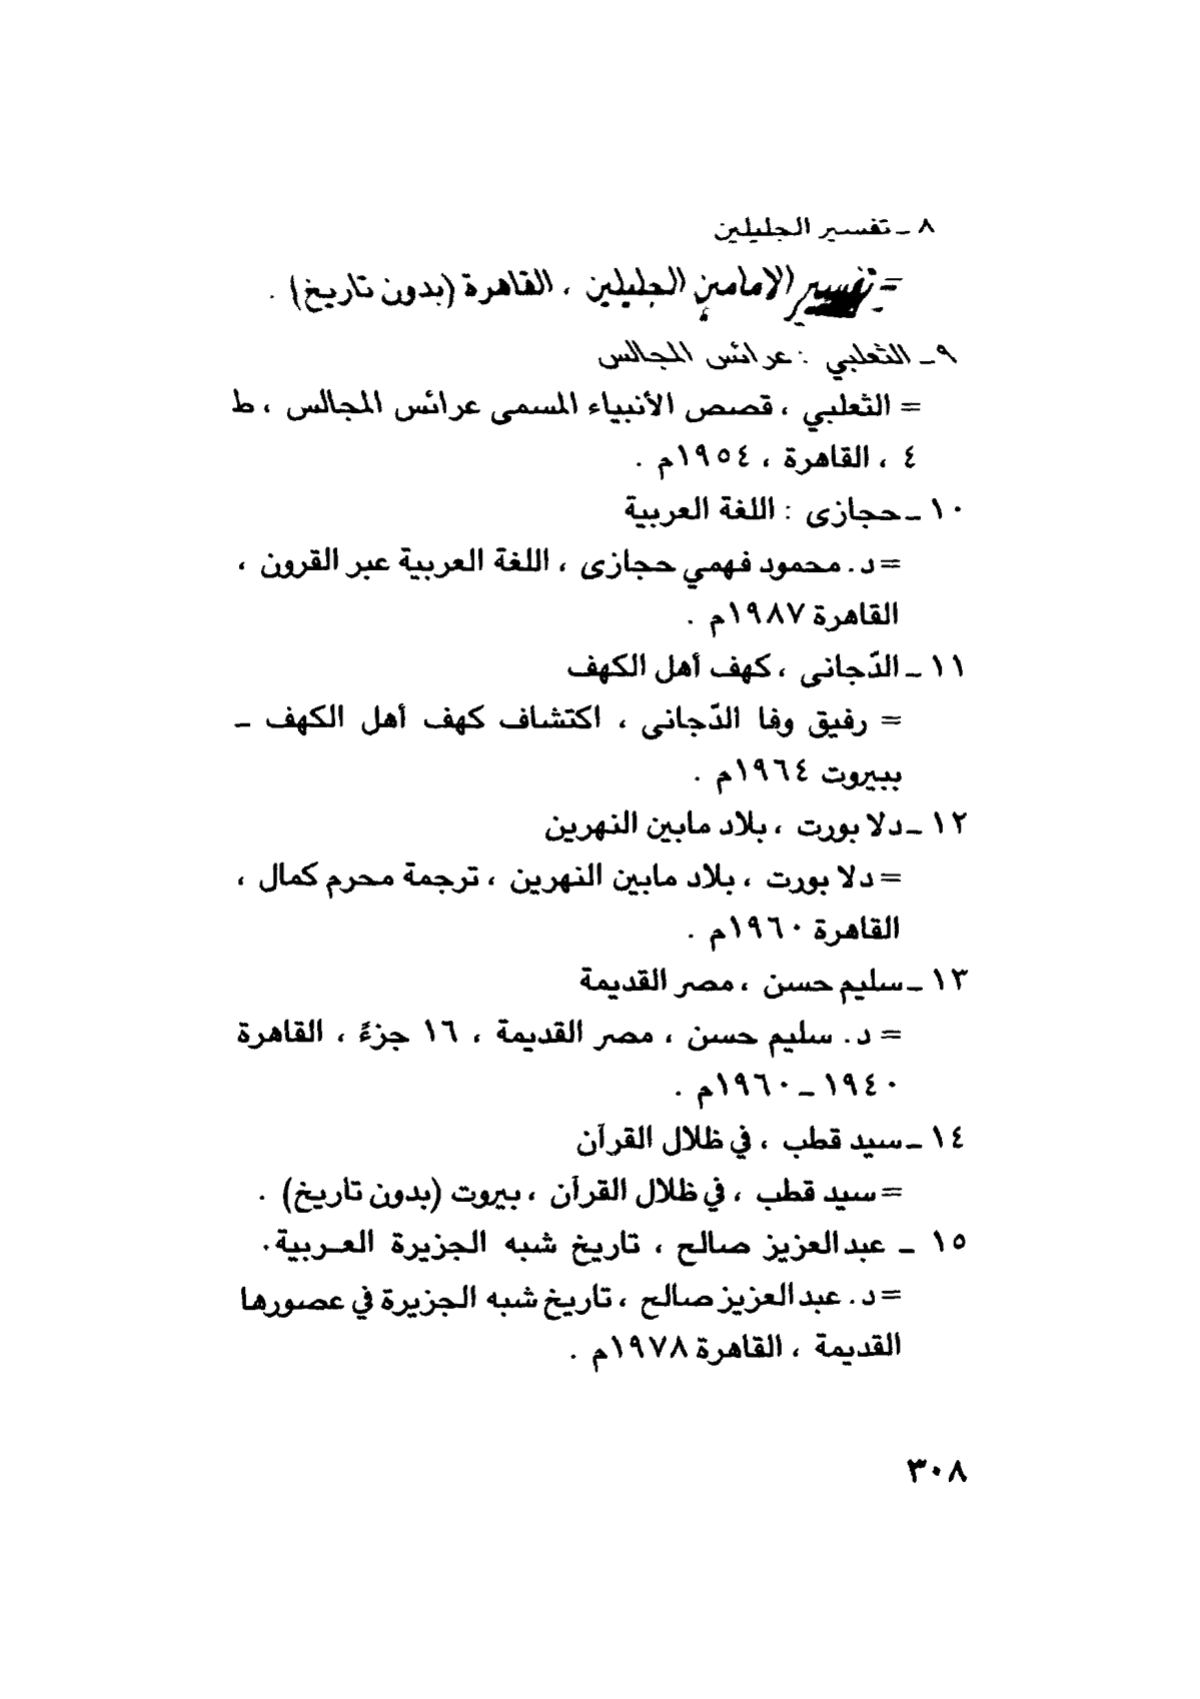 ٨ ـ تفسير الجليلين
= تفسير الامامين الجليلين ، القاهرة (بدون تاريخ) .
٩ـ الثعلبي : عرائس المجالس
= الثعلبي ، قصص الأنبياء المسمى عرائس المجالس ، ط
٤ ، القاهرة ، ١٩٥٤م .
١٠ ـ حجازى : اللغة العربية
= د. محمود فهمي حجازى ، اللغة العربية عبر القرون ،
القاهرة ١٩٨٧م .
١١ ـ الدّجانى ، كهف أهل الكهف
= رفيق وفا الدّجانى ، اكتشاف كهف أهل الكهف ـ
ببيروت ١٩٦٤م .
١٢ ـ دلا بورت ، بلاد مابين النهرين
= دلا بورت ، بلاد مابين النهرين ، ترجمة محرم كمال ،
القاهرة ١٩٦٠م .
١٣ ـ سليم حسن ، مصر القديمة
= د. سليم حسن ، مصر القديمة ، ١٦ جزءً ، القاهرة
١٩٤٠ ـ ١٩٦٠م .
١٤ ـ سيد قطب ، في ظلال القرآن
= سيد قطب ، في ظلال القرآن ، بيروت (بدون تاريخ) .
١٥ ـ عبدالعزيز صالح ، تاريخ شبه الجزيرة العـربية.
= د. عبدالعزيز صالح ، تاريخ شبه الجزيرة في عصورها
القديمة ، القاهرة ١٩٧٨م .
٣٠٨